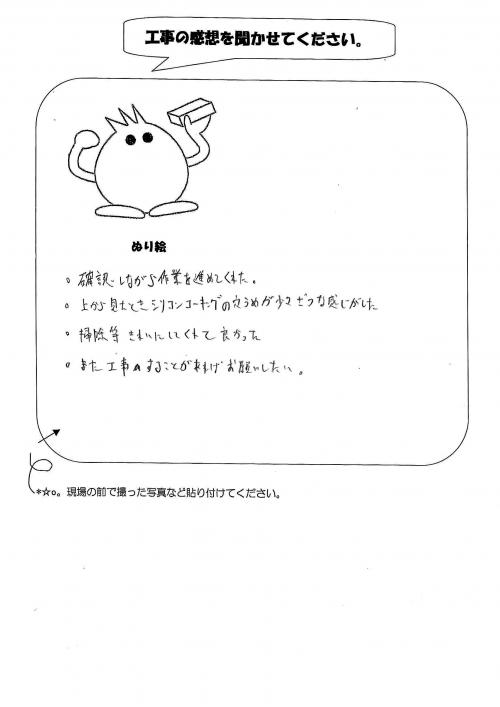 工事の感想を聞かせてください。
ぬり絵
。確認しながら作業を進めてくれた。
。上から見たときシリコンコーキングの穴うめが少々ざつな感じがした
。掃除等きれいにしてくれて良かった
。また工事のすることがあればお願いしたい。
*☆o。現場の前で撮った写真など貼り付けてください。